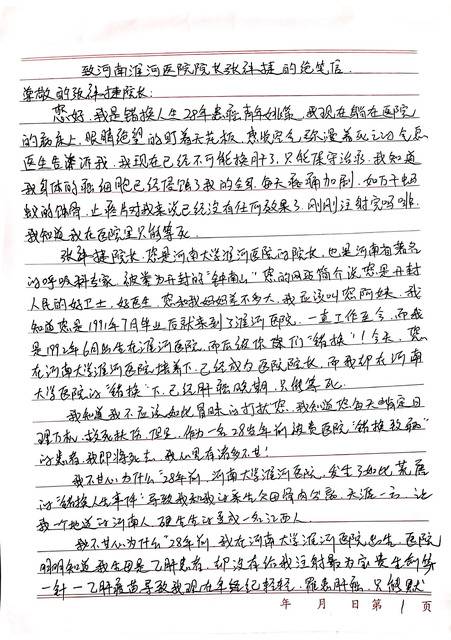 致河南淮河医院院长张祎捷的绝笔信
尊敬的张祎捷院长:
您好,我是错换人生28年患癌青年姚策,我现在躺在医院
的病床上,眼睛绝望的盯着天花板,感觉空气弥漫着死亡的气息
医生告诉我,我现在已经不可能换肝了,只能保守治疗,我知道
我身体的癌细胞已经侵蚀了我的全身,每天疼痛加剧,如万千蚂
蚁的蚀骨,止疼片对我来说已经没有任何效果了,刚刚注射完吗啡,
我知道我在医院里只能等死。
张祎捷院长,您是河南大学淮河医院的院长,也是河南省著名
的呼吸科专家,被誉为开封的"钟南山"您的网页简介说,您是开封
人民的好卫士,好医生,您和我妈妈差不多大,我应该叫您阿姨,我
知道您是1991年7月毕业后就来到了淮河医院,一直工作至今,而我
是1992年6月出生在淮河医院,而后被你 们"错换"!今天,您
在河南大学淮河医院 着下,已经成为医院院长,而我却在河南
大学医院的"错换"下,已经肝癌晚期,只能等死。
我知道我不应该如此冒昧的打扰您,我知道您每天肯定日
理万机,救死扶伤,但是,作为一名28岁年前被贵医院"错换致癌"
的患者,我即将死去,我心里有诸多不甘!
我不甘心为什么"28年前,河南大学淮河医院,发生了如此荒唐
的"错换人生事件"导致我和我的亲生父母骨肉分离,天涯一方,让
我一个地道的河南人,硬生生的变成一名江西人。
我不甘心为什么"28年前,我在河南大学淮河医院出生,医院
明明知道我生母是乙肝患者,却没有给我注射最为宝贵生命的
一针—乙肝疫苗导致我现在年纪轻轻,罹患肝癌,只能默
年 月 日第 1 页